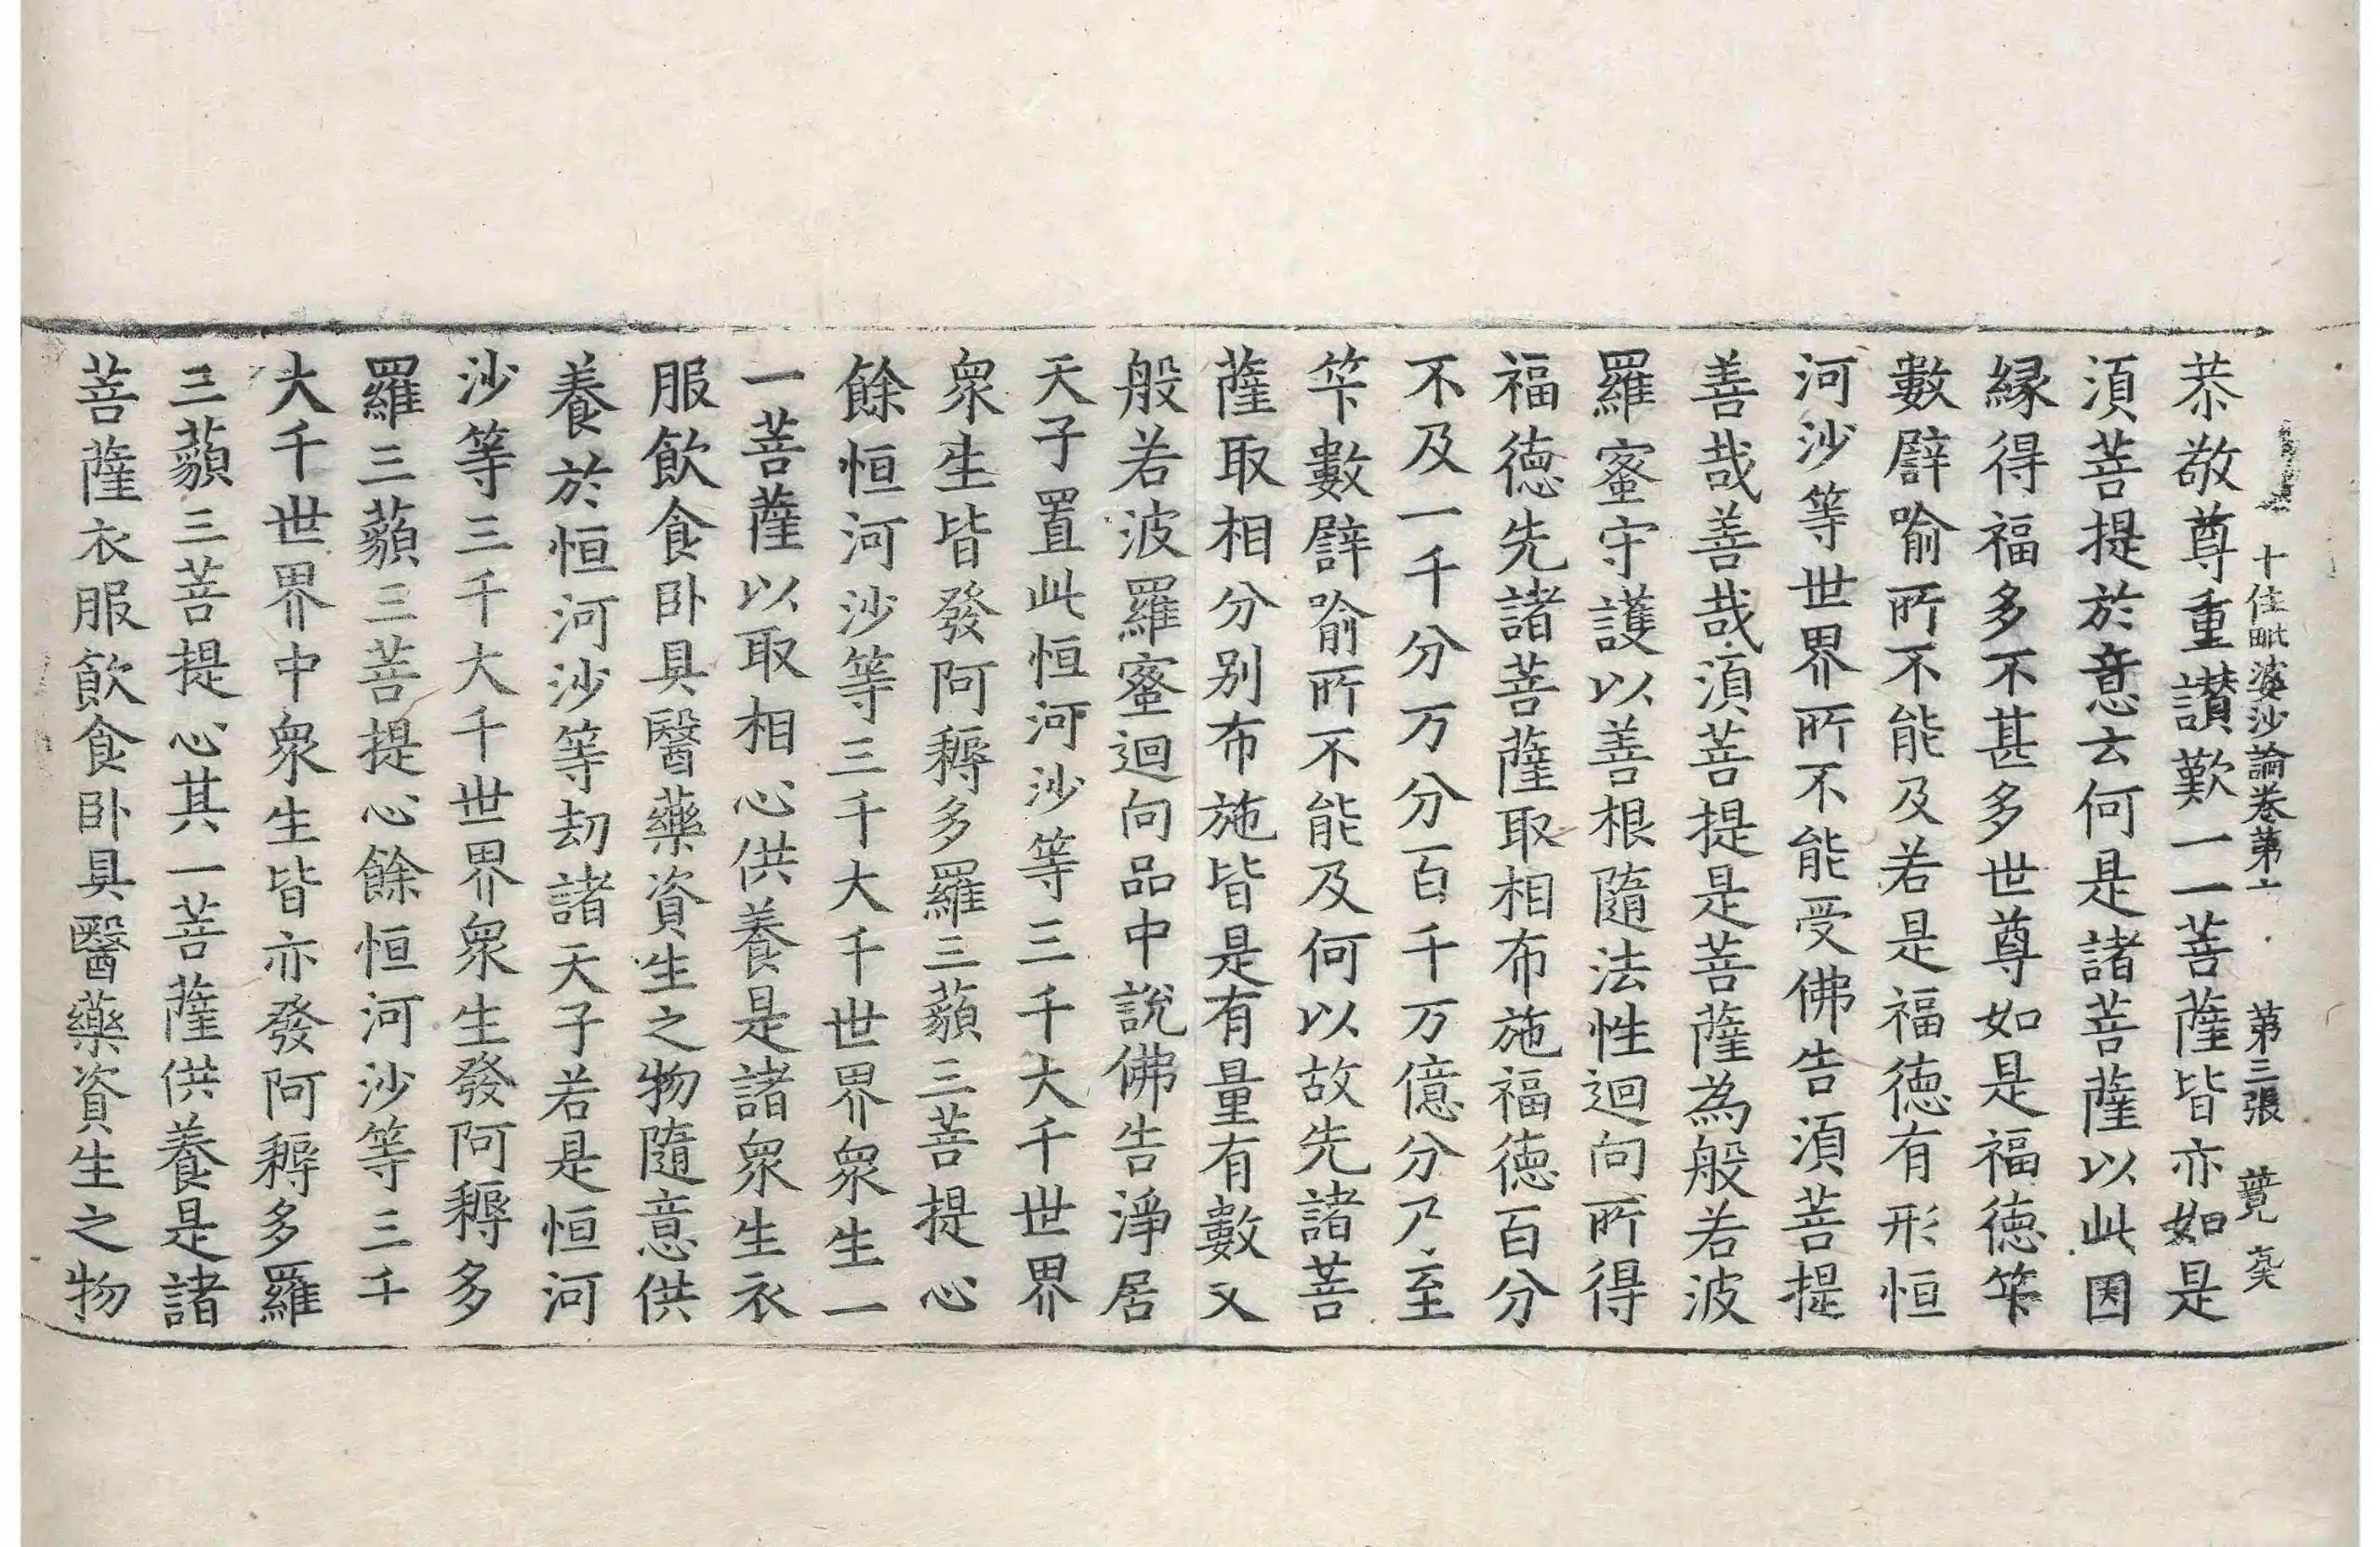 十住毗婆沙論卷第六 第三張 竟
恭敬尊重讃歎一一菩薩皆亦如是
湏菩提於意云何是諸菩薩以此因
縁得福多不甚多世尊如是福徳筭
數譬喻所不能及若是福徳有形恒
河沙等世界所不能受佛告湏菩提
善哉善哉湏菩提是菩薩為般若波
羅蜜守護以善根隨法性迴向所得
福徳先諸菩薩取相布施福徳百分
不及一千分万分百千万億分乃至
筭數譬喻所不能及何以故先諸菩
薩取相分別布施皆是有量有數又
般若波羅蜜迴向品中說佛告淨居
天子置此恒河沙等三千大千世界
衆生皆發阿耨多羅三藐三菩提心
餘恒河沙等三千大千世界衆生一
一菩薩以取相心供養是諸衆生衣
服飲食卧具醫藥資生之物隨意供
養於恒河沙等劫諸天子若是恒河
沙等三千大千世界衆生發阿耨多
羅三藐三菩提心餘恒河沙等三千
大千世界中衆生皆亦發阿耨多羅
三藐三菩提心其一菩薩供養是諸
菩薩衣服飲食卧具醫藥資生之物